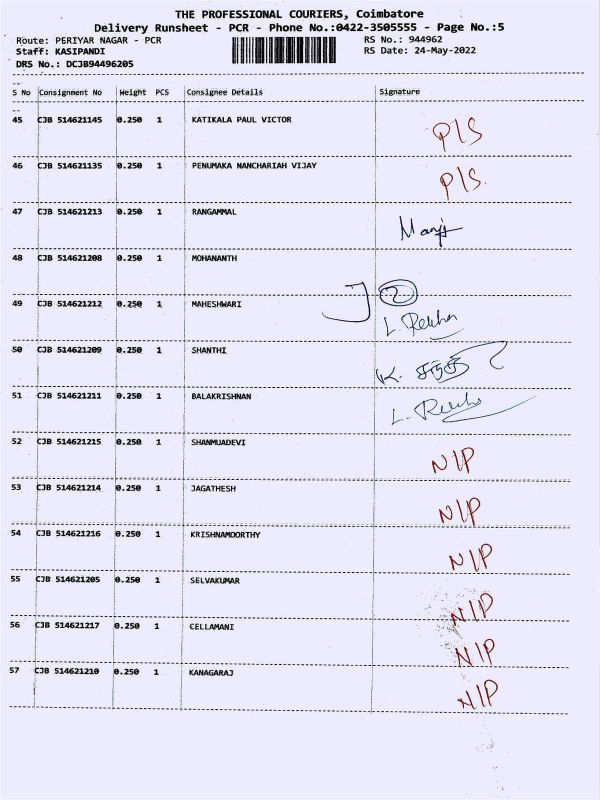 THE PROFESSIONAL COURIERS, Coimbatore
Delivery Runsheet - PCR - Phone No.:0422-3505555 - Page No.:5
Route: PERIYAR NAGAR - PCR RS No.: 944962
Staff: KASIPANDI RS Date: 24-May-2022
DRS No.: DCJB94496205
S No Consignment No Weight PCS Consignee Details Signature
45 CJB 514621145 0.250 1 KATIKALA PAUL VICTOR P/S
46 CJB 514621135 0.250 1 PENUMAKA NANCHARIAH VIJAY P/S.
47 CJB 514621213 0.250 1 RANGAMMAL
48 CJB 514621208 0.250 1 MOHANANTH
49 CJB 514621212 0.250 1 MAHESHWARI 2
L. Rekha
50 CJB 514621209 0.250 1 SHANTHI K.
51 CJB 514621211 0.250 1 BALAKRISHNAN L. Rekha
52 CJB 514621215 0.250 1 SHANMUADEVI N/P
53 CJB 514621214 0.250 1 JAGATHESH N/P
54 CJB 514621216 0.250 1 KRISHNAMOORTHY N/P
55 CJB 514621205 0.250 1 SELVAKUMAR N/P
56 CJB 514621217 0.250 1 CELLAMANI N/P
57 CJB 514621210 0.250 1 KANAGARAJ N/P